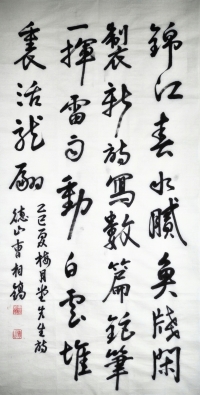 錦江春水膩魚牋閑
製新詩寫數篇鉅筆
一揮雷雨動白雲堆
裏活龍翩
乙巳夏梅月堂先生詩
德山曹相鎬